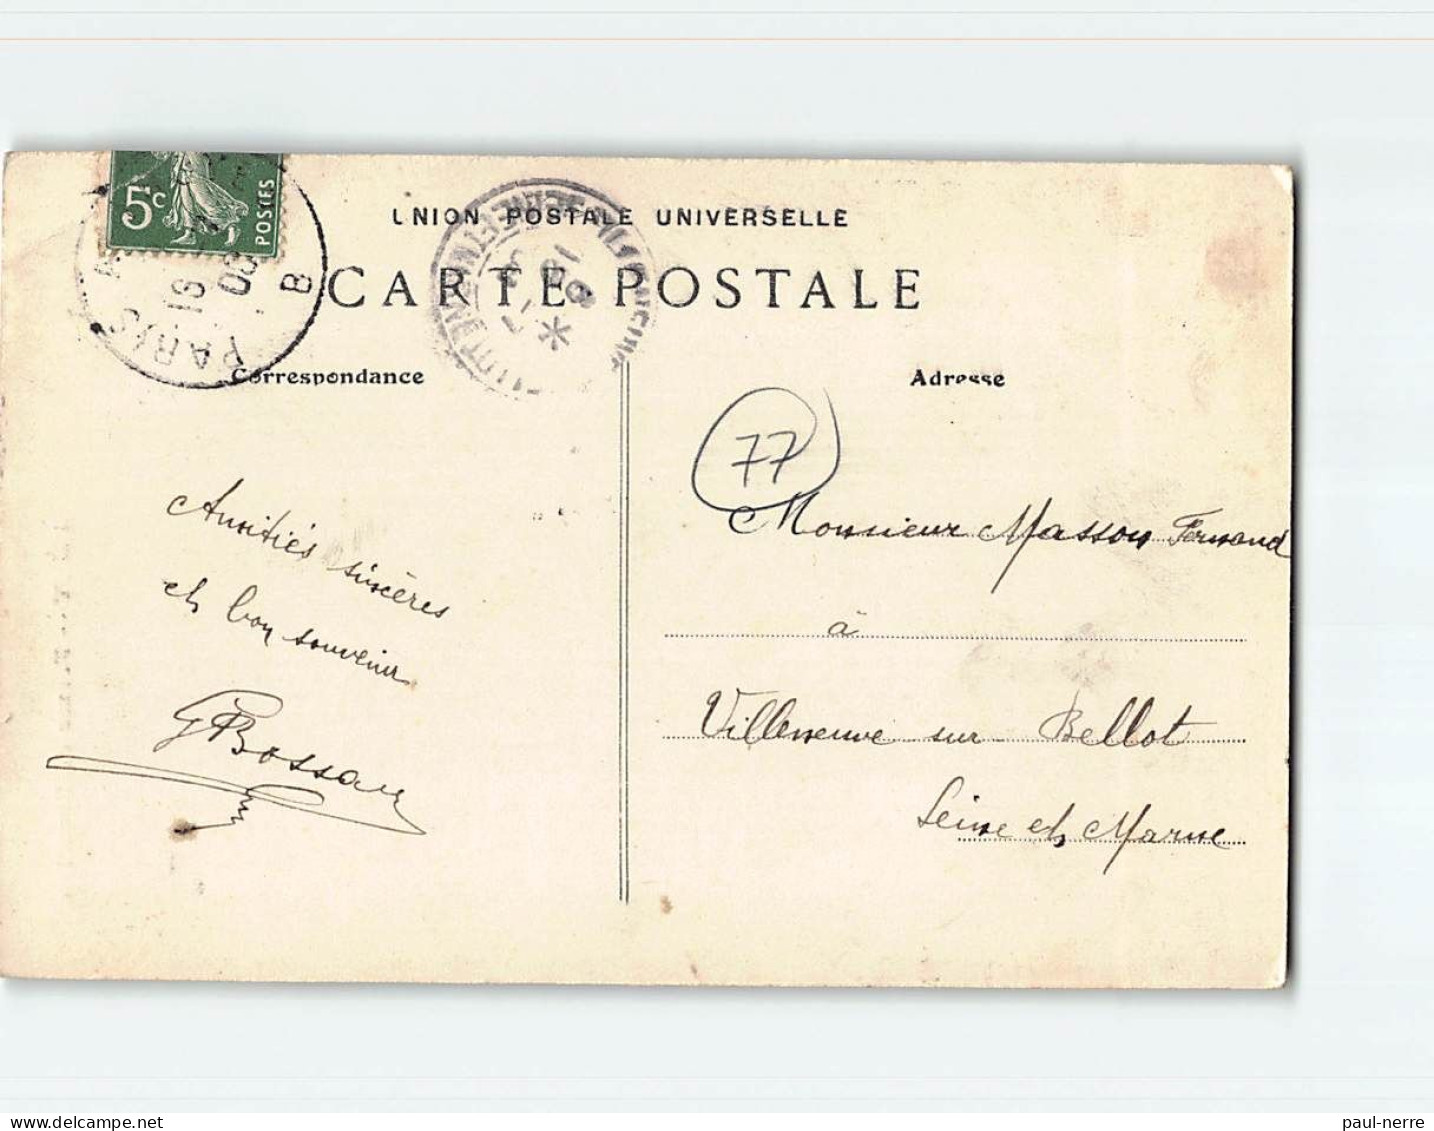 5c
POSTES
PARIS
18
09
B
UNION POSTALE UNIVERSELLE
CARTE POSTALE
Correspondance
Adresse
77
Amitiés sincères
et bon souvenir
G Bossan
Monsieur Masson Fernand
à
Villeneuve sur Bellot
Seine et Marne
paul-nerre